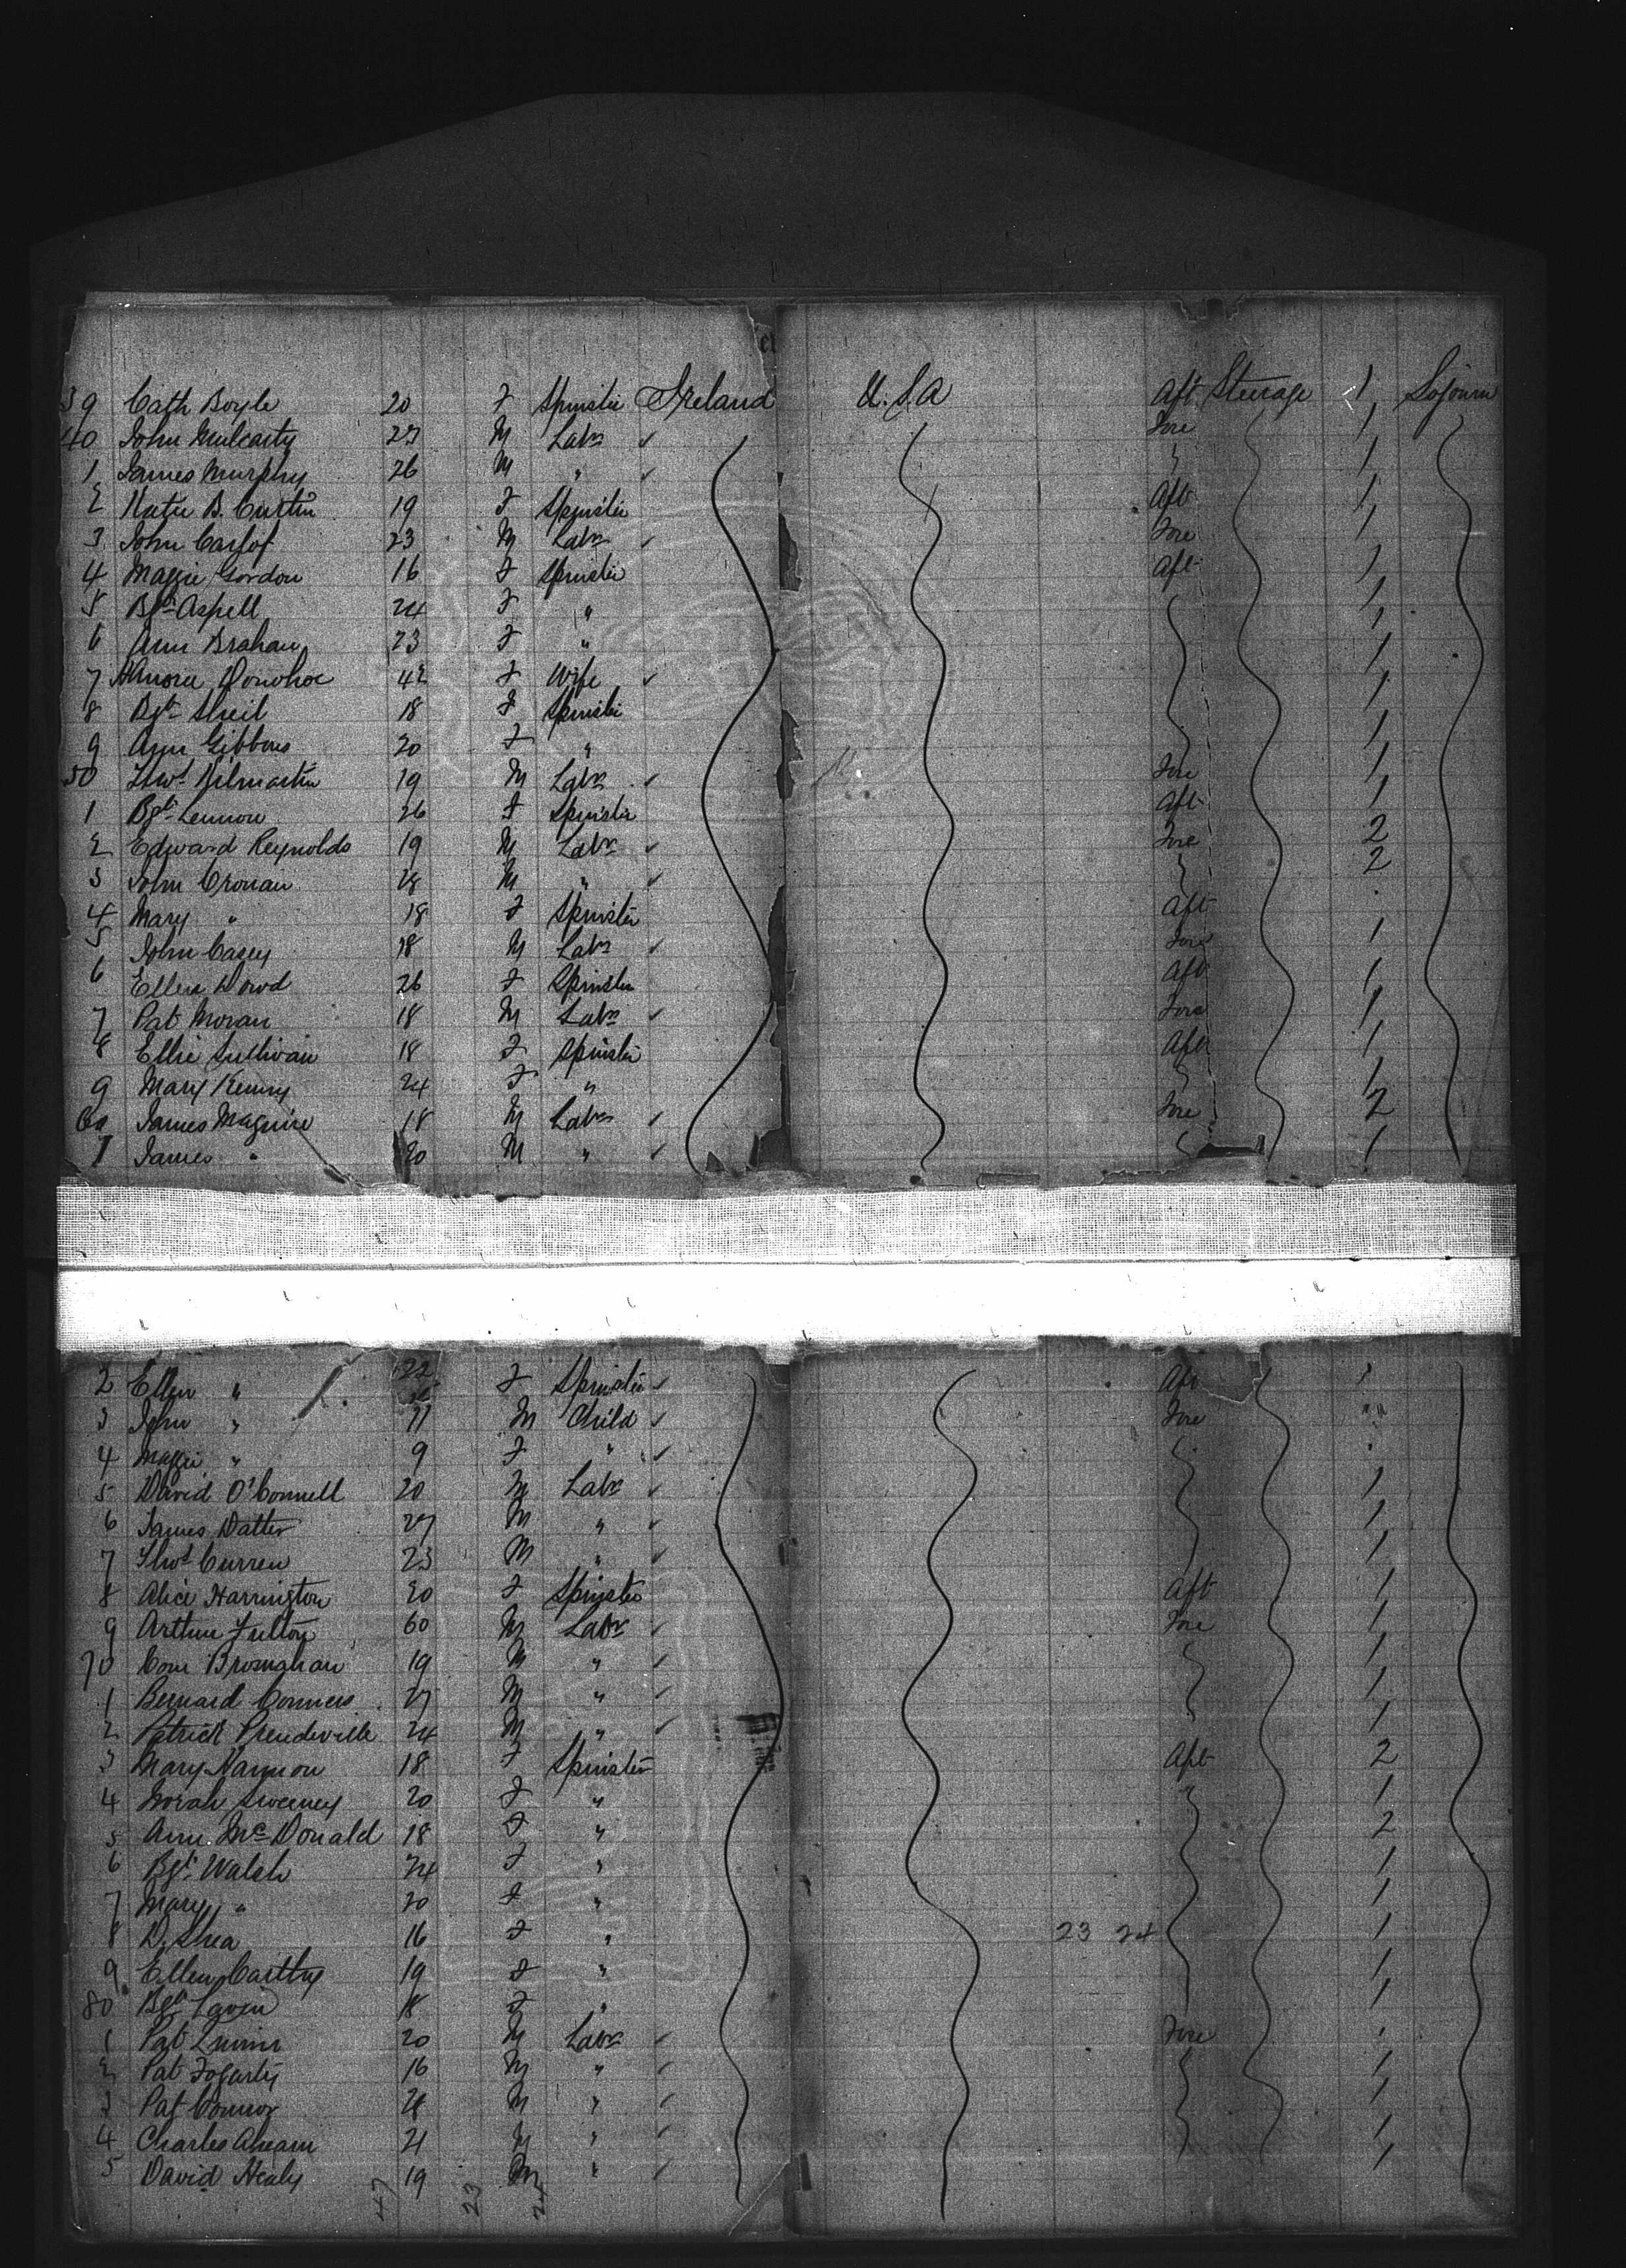 39 Cath Boyle 20 F Spinster Ireland U.S.A Aft Steerage 1 Sojourn
40 John Mulcarty 27 M Labr ✓ Fore 1
1 James Murphy 26 M " ✓ 1
2 Katie B. Curtin 19 F Spinster Aft 1
3 John 23 M Labr ✓ Fore 1
4 Maggie Gordon 16 F Spinster Aft 1
5 Bgt Aspell 24 F " 1
6 Ann Brahan 23 F " 1
7 Donohoe 42 F Wife ✓ 1
8 Bgt Sheil 18 F Spinster 1
9 Ann Gibbons 20 F " 1
50 Thos Kilmartin 19 M Labr ✓ Fore 1
1 Bgt Lennon 26 F Spinster Aft 1
2 Edward Reynolds 19 M Labr ✓ Fore 2
3 John Cronan 18 M " ✓ 2
4 Mary " 18 F Spinster Aft
5 John Casey 18 M Labr ✓ Fore 1
6 Ellen Dowd 26 F Spinster Aft 1
7 Pat Moran 18 M Labr ✓ Fore 1
8 Ellie Sullivan 18 F Spinster Aft 1
9 Mary Kenny 24 F " 1
60 James Maguire 18 M Labr ✓ Fore 2
1 James " M " ✓ 1
2 Ellen " 22 F Spinster ✓ Aft 1
3 John " 11 M Child ✓ Fore "
4 Maggie " 9 F " ✓
5 David O'Connell 20 M Labr ✓ 1
6 James Dalter 27 M " ✓ 1
7 Thos Curren 23 M " ✓ 1
8 Alice Harrington 20 F Spinster Aft 1
9 Arthur Fulton 60 M Labr ✓ Fore 1
70 Con Brosnahan 19 M " ✓ 1
1 Bernard Conners 27 M " ✓ 1
2 Patrick Prendeville 24 M " ✓ 1
3 Mary Hannon 18 F Spinster Aft 2
4 Norah Sweeney 20 F " " 1
5 Ann McDonald 18 F " 2
6 Bgt Walsh 24 F " 1
7 Mary " 20 F " 1
8 D. Shea 16 F " 23 24 1
9 Ellen Carthy 19 F " 1
80 Bgt Lavin 18 F " 1
1 Pat Quinn 20 M Labr ✓ Fore 1
2 Pat Fogarty 16 M " ✓ 1
3 Pat Connor M " ✓ 1
4 Charles Ahearn 21 M " ✓ 1
5 David Healy 19 M " ✓ 1
47 23 24